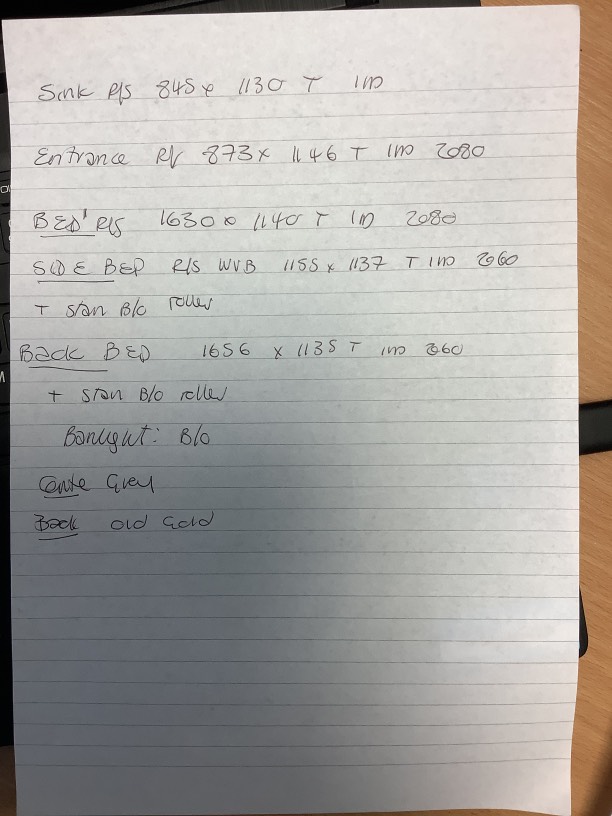 Sink R/S 845 x 1130 T IND
Entrance R/ 873 x 1146 T IND 2080
BED' R/S 1630 x 1140 T IND 2080
SIDE BED R/S WVB 1155 x 1137 T IND 2060
+ stan B/o roller
Back BED 1656 x 1135 T IND 2060
+ stan B/o roller
Banlight: B/o
Grey
Back old Gold